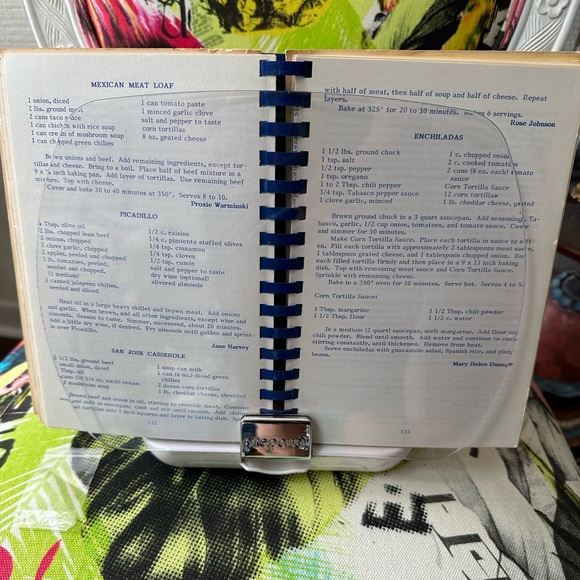 MEXICAN MEAT LOAF
1 onion, diced
2 lbs. ground meat
2 cans taco sauce
1 can chicken with rice soup
1 can cream of mushroom soup
1 can chopped green chilies
1 can tomato paste
1 minced garlic clove
salt and pepper to taste
corn tortillas
8 oz. grated cheese
Brown onions and beef. Add remaining ingredients, except tor-
tillas and cheese. Bring to a boil. Place half of beef mixture in a
9 x 13 inch baking pan. Add layer of tortillas. Use remaining beef
mixture. Top with cheese.
Cover and bake 30 to 40 minutes at 350°. Serves 8 to 10.
Proxie Warminski
PICADILLO
Tbsp. olive oil
lbs. chopped lean beef
onions, chopped
1 clove garlic, chopped
apples, peeled and chopped
1 lb. tomatoes, peeled,
seeded and chopped,
(3 medium)
3 canned jalapeno chilies,
seeded and sliced
1/2 c. raisins
1/4 c. pimiento stuffed olives
1/4 tsp. cinnamon
1/4 tsp. cloves
1/2 tsp. cumin
salt and pepper to taste
dry wine (optional)
slivered almonds
Heat oil in a large heavy skillet and brown meat. Add onions
and garlic. When brown, add all other ingredients, except wine and
almonds. Season to taste. Simmer, uncovered, about 20 minutes.
Add a little dry wine, if desired. Fry almonds until golden and sprinkle
over Picadillo.
Jane Harvey
SAN JOSE CASSEROLE
2 1/2 lbs. ground beef
small onion, diced
Tbsp. oil
can (10 3/4 oz. each) cream
of mushroom soup
1 soup can milk
1 can (4 oz.) diced green
chilies
2 dozen corn tortillas
1 lb. cheddar cheese, shredded
Brown beef and onion in oil, stirring to crumble meat. Combine
soup and milk in saucepan; cook and stir until smooth. Add chilies
tortillas into 1 inch squares and layer in baking dish.
132
with half of meat, then half of soup and half of cheese. Repeat
layers.
Bake at 325° for 20 to 30 minutes. Makes 6 servings.
Rose Johnson
ENCHILADAS
1 1/2 lbs. ground chuck
1 tsp. salt
1/2 tsp. pepper
1 tsp. oregano
1 to 2 Tbsp. chili pepper
3/4 tsp. Tabasco pepper sauce
1 clove garlic, minced
1 c. chopped onion
2 c. cooked tomatoes
2 cans (8 oz. each) tomato
sauce
Corn Tortilla Sauce
12 corn tortillas
1 lb. cheddar cheese, grated
Brown ground chuck in a 3 quart saucepan. Add seasoning, Ta-
basco, garlic, 1/2 cup onion, tomatoes, and tomato sauce. Cover
and simmer for 30 minutes.
Make Corn Tortilla Sauce. Place each tortilla in sauce to
en. Fill each tortilla with approximately 2 tablespoons meat sauce,
1 tablespoon grated cheese, and 1 tablespoon chopped onion. Ro
each filled tortilla firmly and then place in a 9 x 13 inch baking
dish. Top with remaining meat sauce and Corn Tortilla Sauce.
Sprinkle with remaining cheese.
Bake in a 350° oven for 30 minutes. Serve hot. Serves 4 to
Corn Tortilla Sauce:
3 Tbsp. margarine
1 1/2 Tbsp. flour
1 1/2 Tbsp. chili powder
1 1/2 c. water
In a medium (2 quart) saucepan, melt margarine. Add flour and
chili powder. Blend until smooth. Add water and continue to cook,
stirring constantly, until thickened. Remove from heat.
Serve enchiladas with guacamole salad, Spanish rice, and pinto
beans.
Mary Helen
133